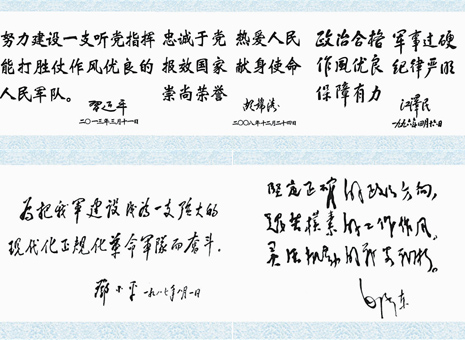 努力建设一支听党指挥
能打胜仗作风优良的
人民军队。
習近平
二〇一三年三月十一日
忠诚于党 热爱人民
报效国家 献身使命
崇尚荣誉
胡锦涛
二〇〇八年十二月二十四日
政治合格 军事过硬
作风优良 纪律严明
保障有力
江泽民
为把我军建设成为一支强大的
现代化正规化革命军队而奋斗.
鄧小平
坚定正确的政治方向,
艰苦樸素的工作作风,
灵活机动的战略战術。
毛泽东